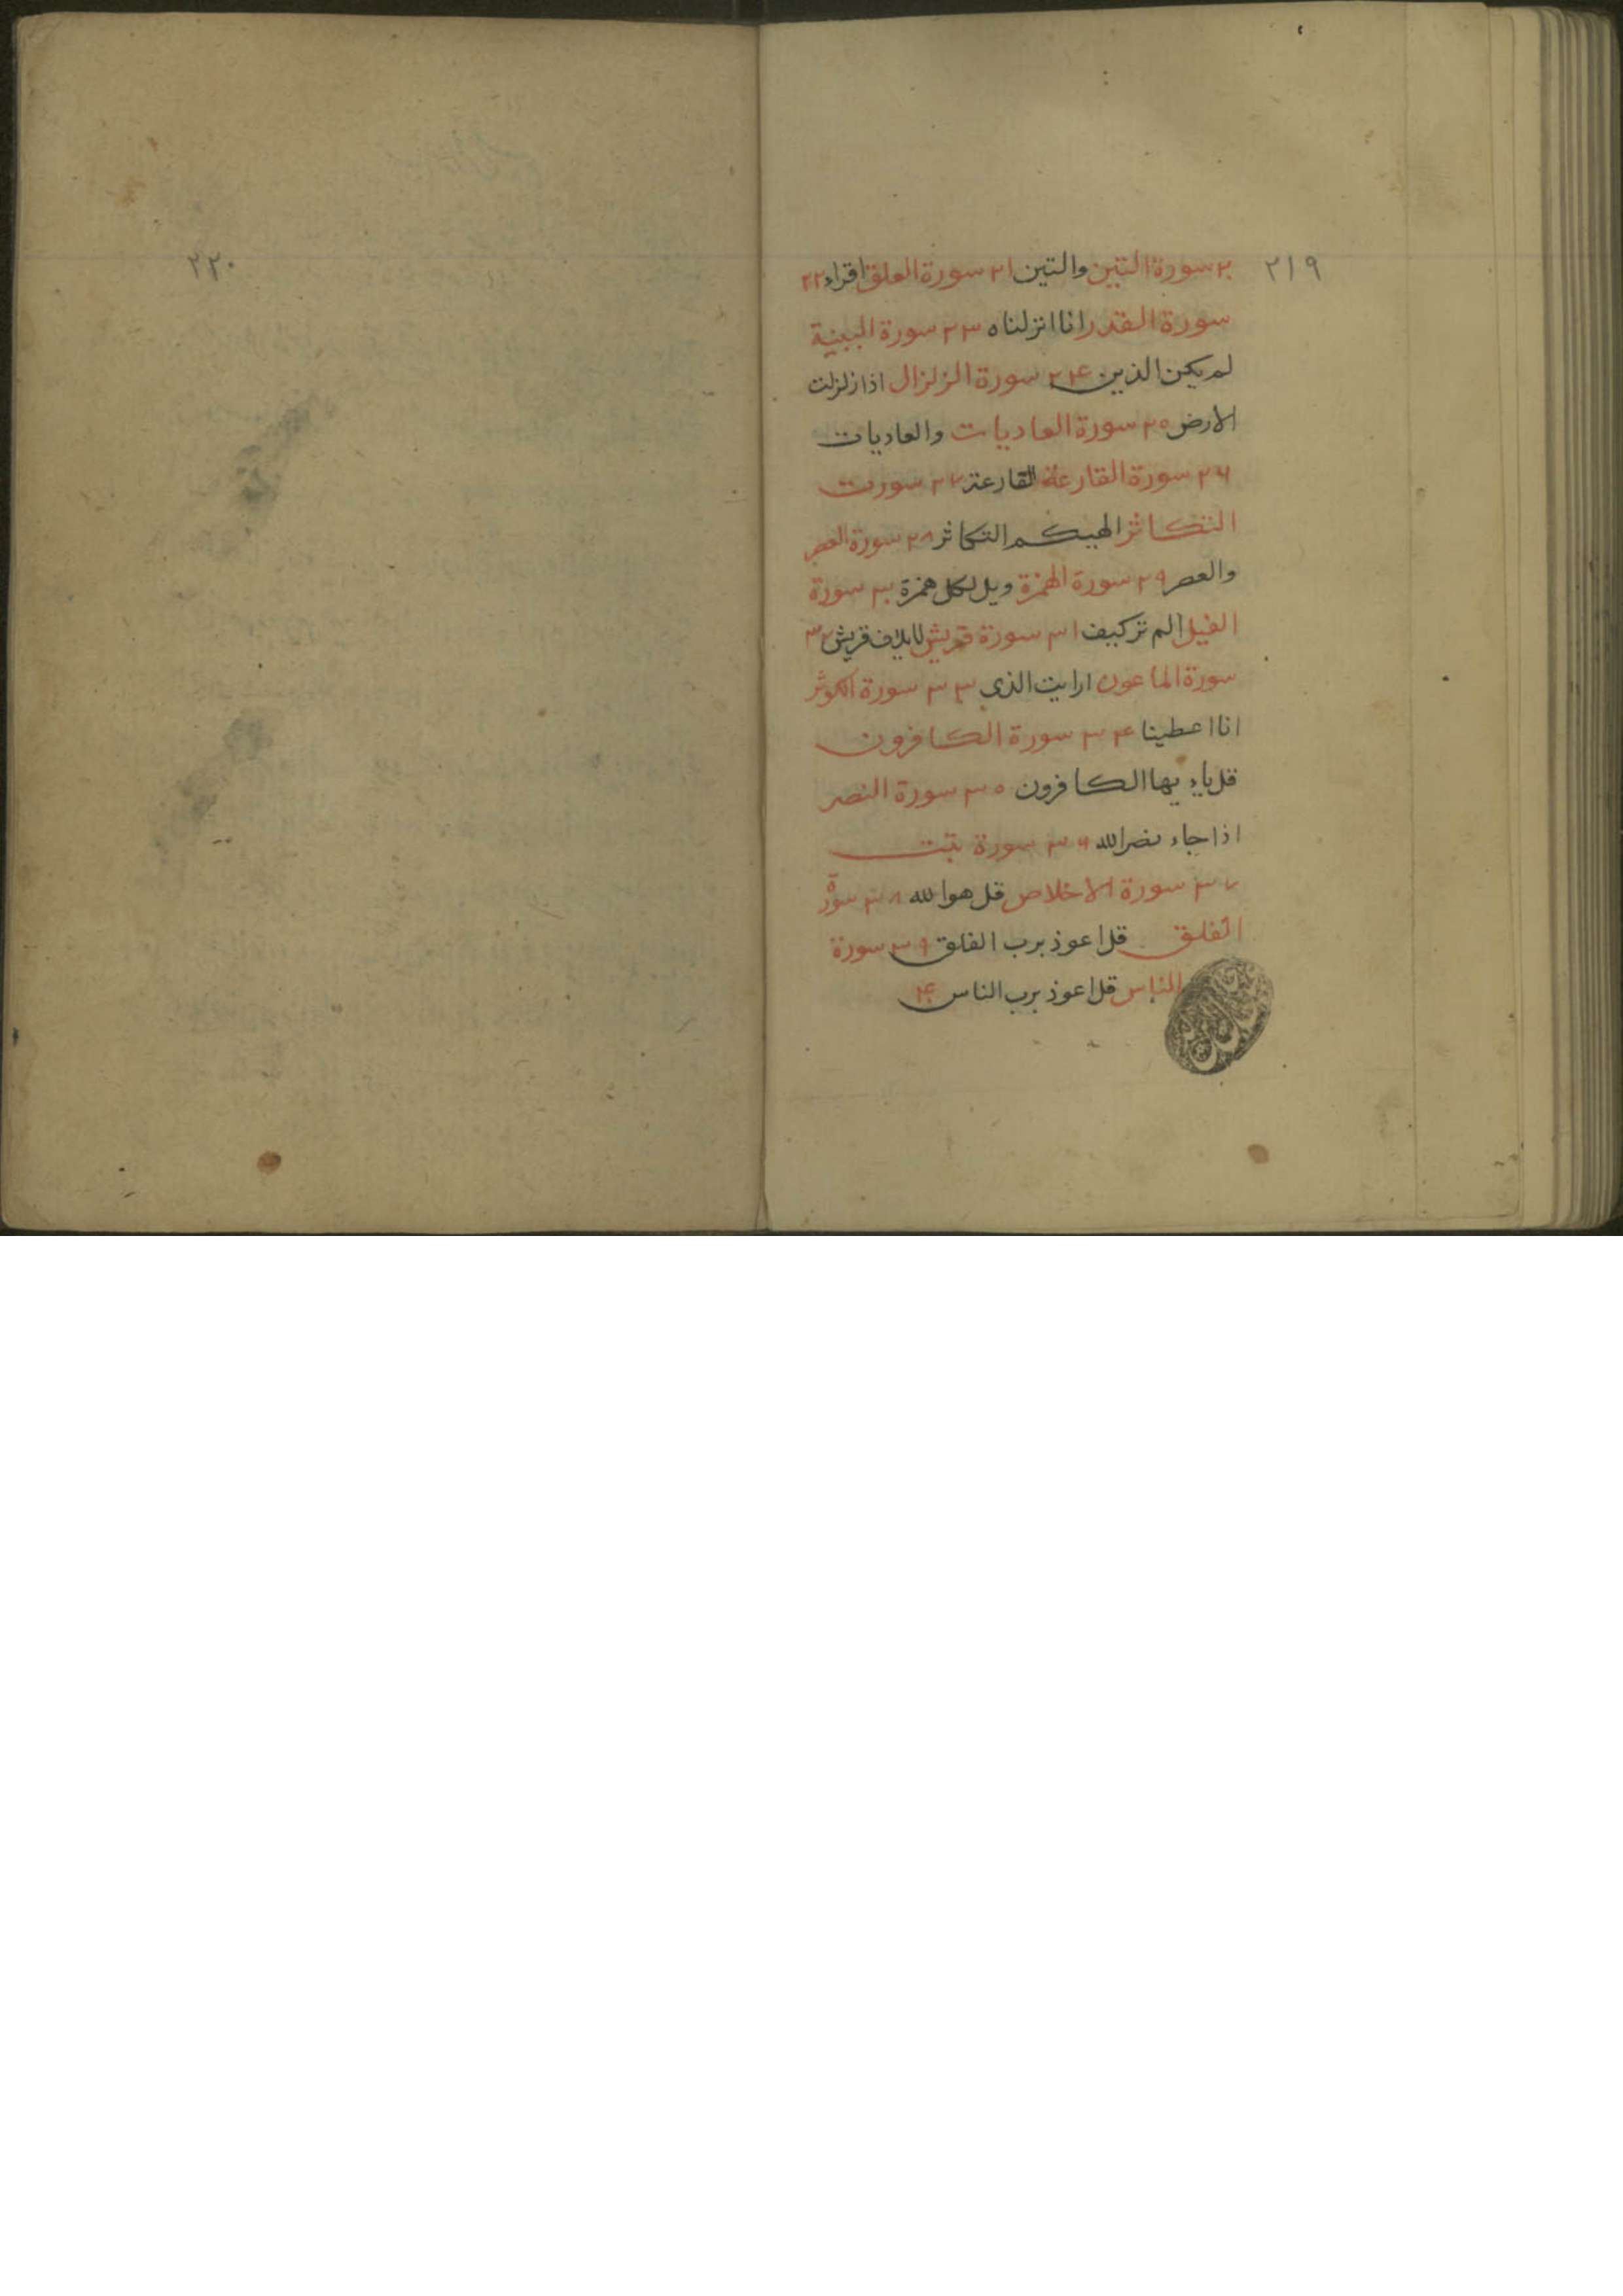 ٢١٩
٢٠ سورة التين والتين ٢١ سورة العلق اقراء ٢٢
سورة القدر انا انزلناه ٢٣ سورة البينة
لم يكن الذين ٢۴ سورة الزلزال اذا زلزلت
الارض ٢٥ سورة العاديات والعاديات
٢٦ سورة القارعة القارعة ٢٧ سورت
التكاثر الهيكم التكاثر ٢٨ سورة العصر
والعصر ٢٩ سورة الهمزة ويل لكل همزة ٣٠ سورة
الفيل الم تر كيف ٣١ سورة قريش لايلاف قريش ٣٢
سورة الماعون ارايت الذى ٣٣ سورة الكوثر
انا اعطينا ٣۴ سورة الكافرون
قل ياء يها الكافرون ٣٥ سورة النصر
اذا جاء نصر الله ٣٦ سورة تبت
٣٧ سورة الاخلاص قل هو الله ٣٨ سورة
الفلق قل اعوذ برب الفلق ٣٩ سورة
الناس قل اعوذ برب الناس ۴٠
٢٢٠